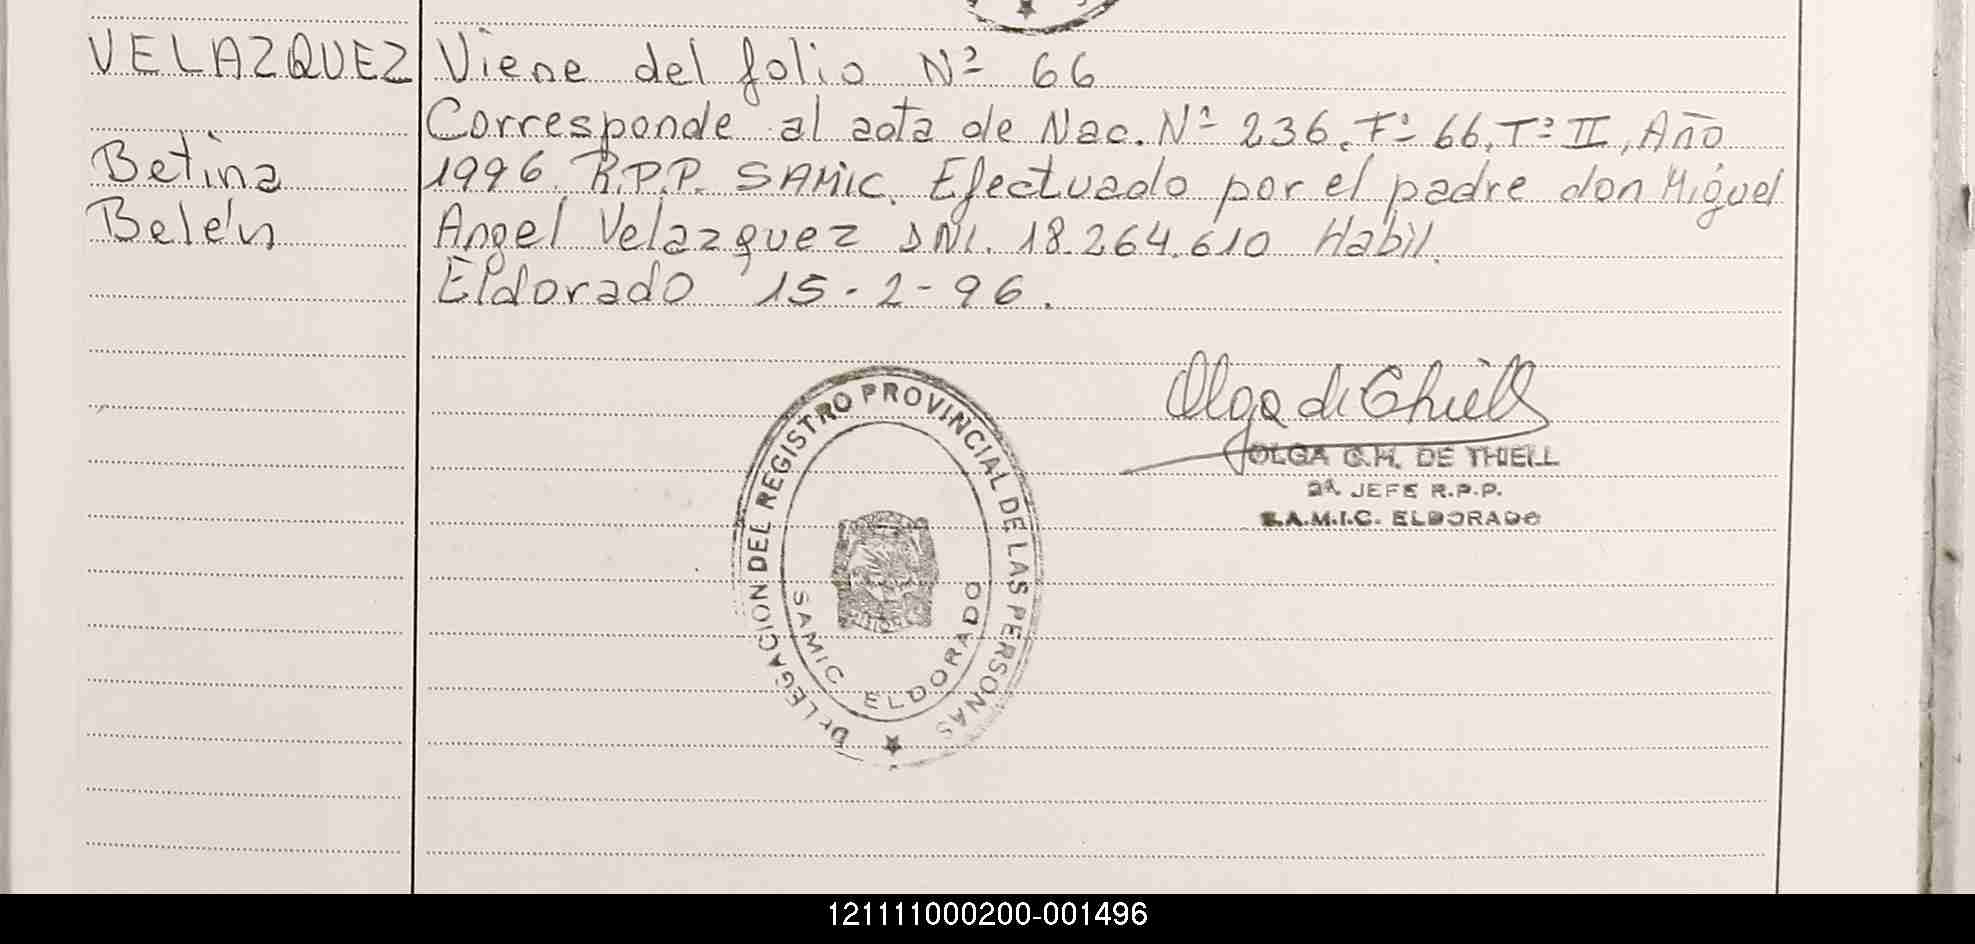 VELAZQUEZ
Betina
Belén
Viene del folio Nº 66
Corresponde al acta de Nac. Nº 236. Fº 66. Tº II, Año
1996. R.P.P. SAMIC. Efectuado por el padre don Miguel
Angel Velazquez DNI. 18.264.610 Habil.
Eldorado 15-2-96.
Olga de Thiell
OLGA G.H. DE THIELL
2ª JEFE R.P.P.
S.A.M.I.C. ELDORADO
DELEGACION DEL REGISTRO PROVINCIAL DE LAS PERSONAS
SAMIC ELDORADO
121111000200-001496